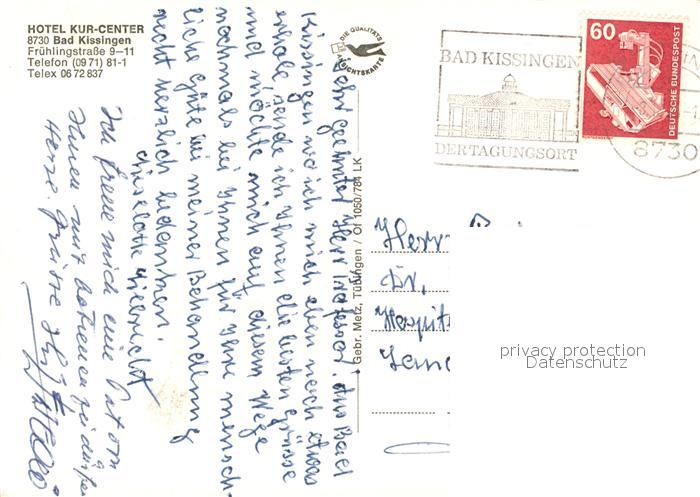 HOTEL KUR-CENTER
8730 Bad Kissingen
Frühlingstraße 9–11
Telefon (09 71) 81-1
Telex 06 72 837
DIE QUALITÄTS
ANSICHTSKARTE
BAD KISSINGEN
DER TAGUNGSORT
60
DEUTSCHE BUNDESPOST
8730
Sehr geehrter Herr Professor! Aus Bad
Kissingen wo ich mich eben noch etwas
erhole sende ich Ihnen die besten Grüsse
und möchte mich auf diesem Wege
nochmals bei Ihnen für Ihre mensch-
liche Güte bei meiner Behandlung
recht herzlich bedanken.
Ich freue mich
Ihnen mit betreuen zu dürfen
Herzl. Grüsse Ihr
Gebr. Metz, Tübingen / Of 1050/784 LK
Herr
Dr.
privacy protection
Datenschutz